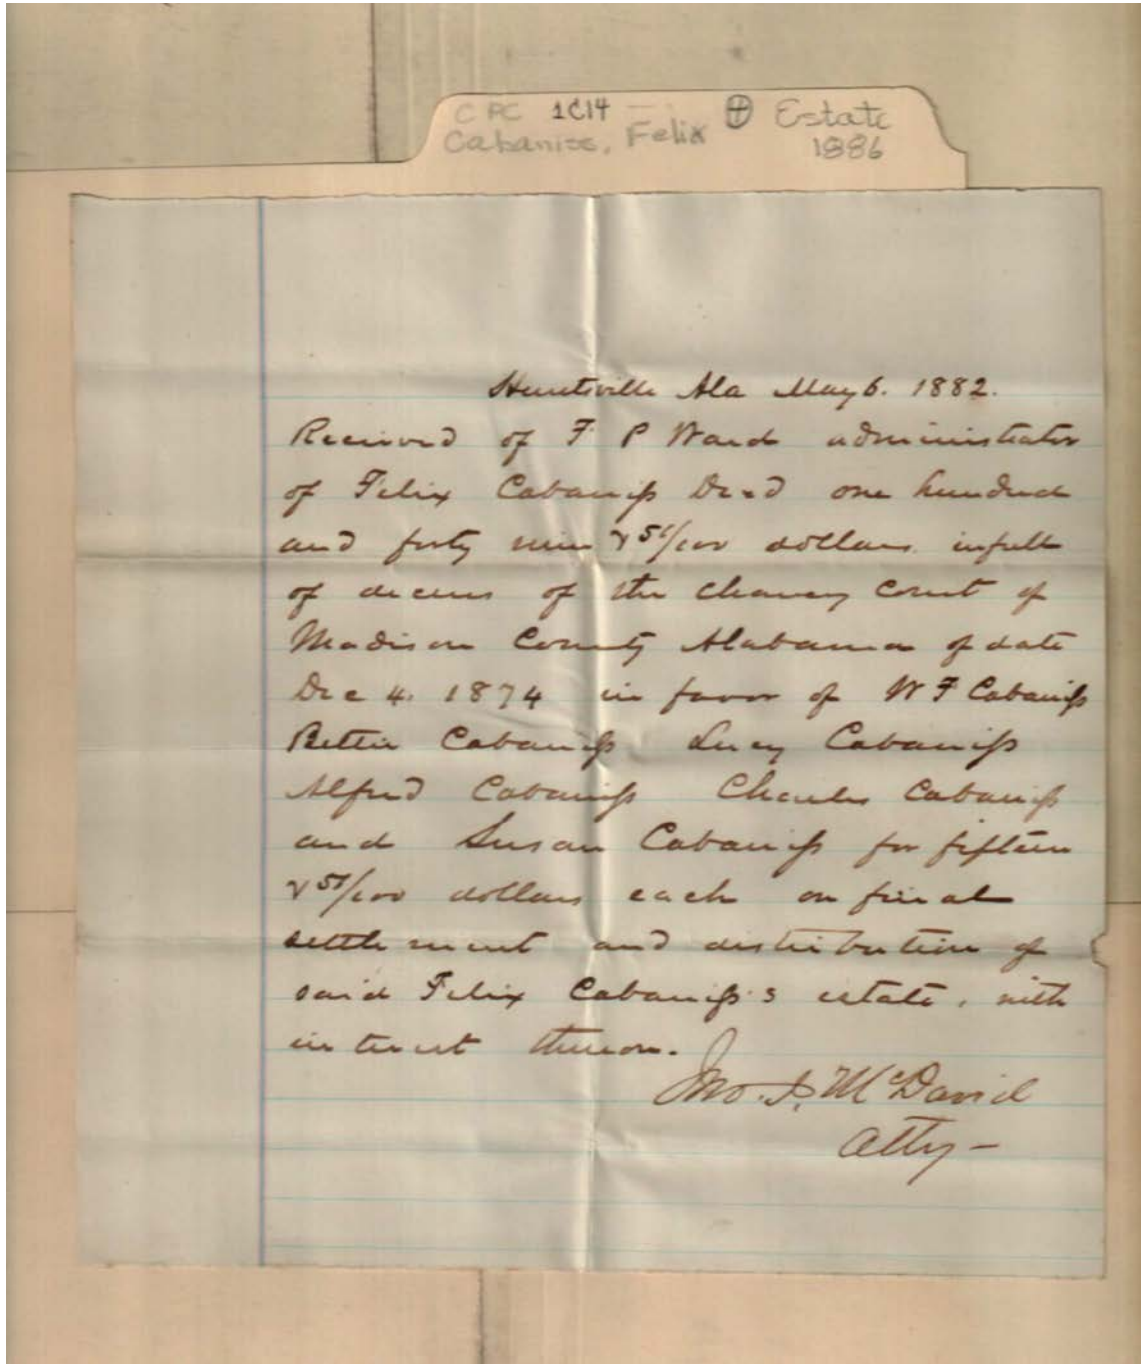 CPC 1C14 Estate
Cabaniss, Felix 1886
Huntsville Ala May 6. 1882.
Received of F P Ward administrator
of Felix Cabaniss Decd one hundred
and forty nine & 51/100 dollars in full
of decrees of the Chancey Court of
Madison County Alabama of date
Dec 4. 1874 in favor of W F Cabaniss
Bettie Cabaniss Lucy Cabaniss
Alfred Cabaniss Charles Cabaniss
and Susan Cabaniss for fifteen
& 51/100 dollars each on final
settlement and distribution of
said Felix Cabaniss's estate, with
interest thereon.
Jno. J. McDavid
Atty-